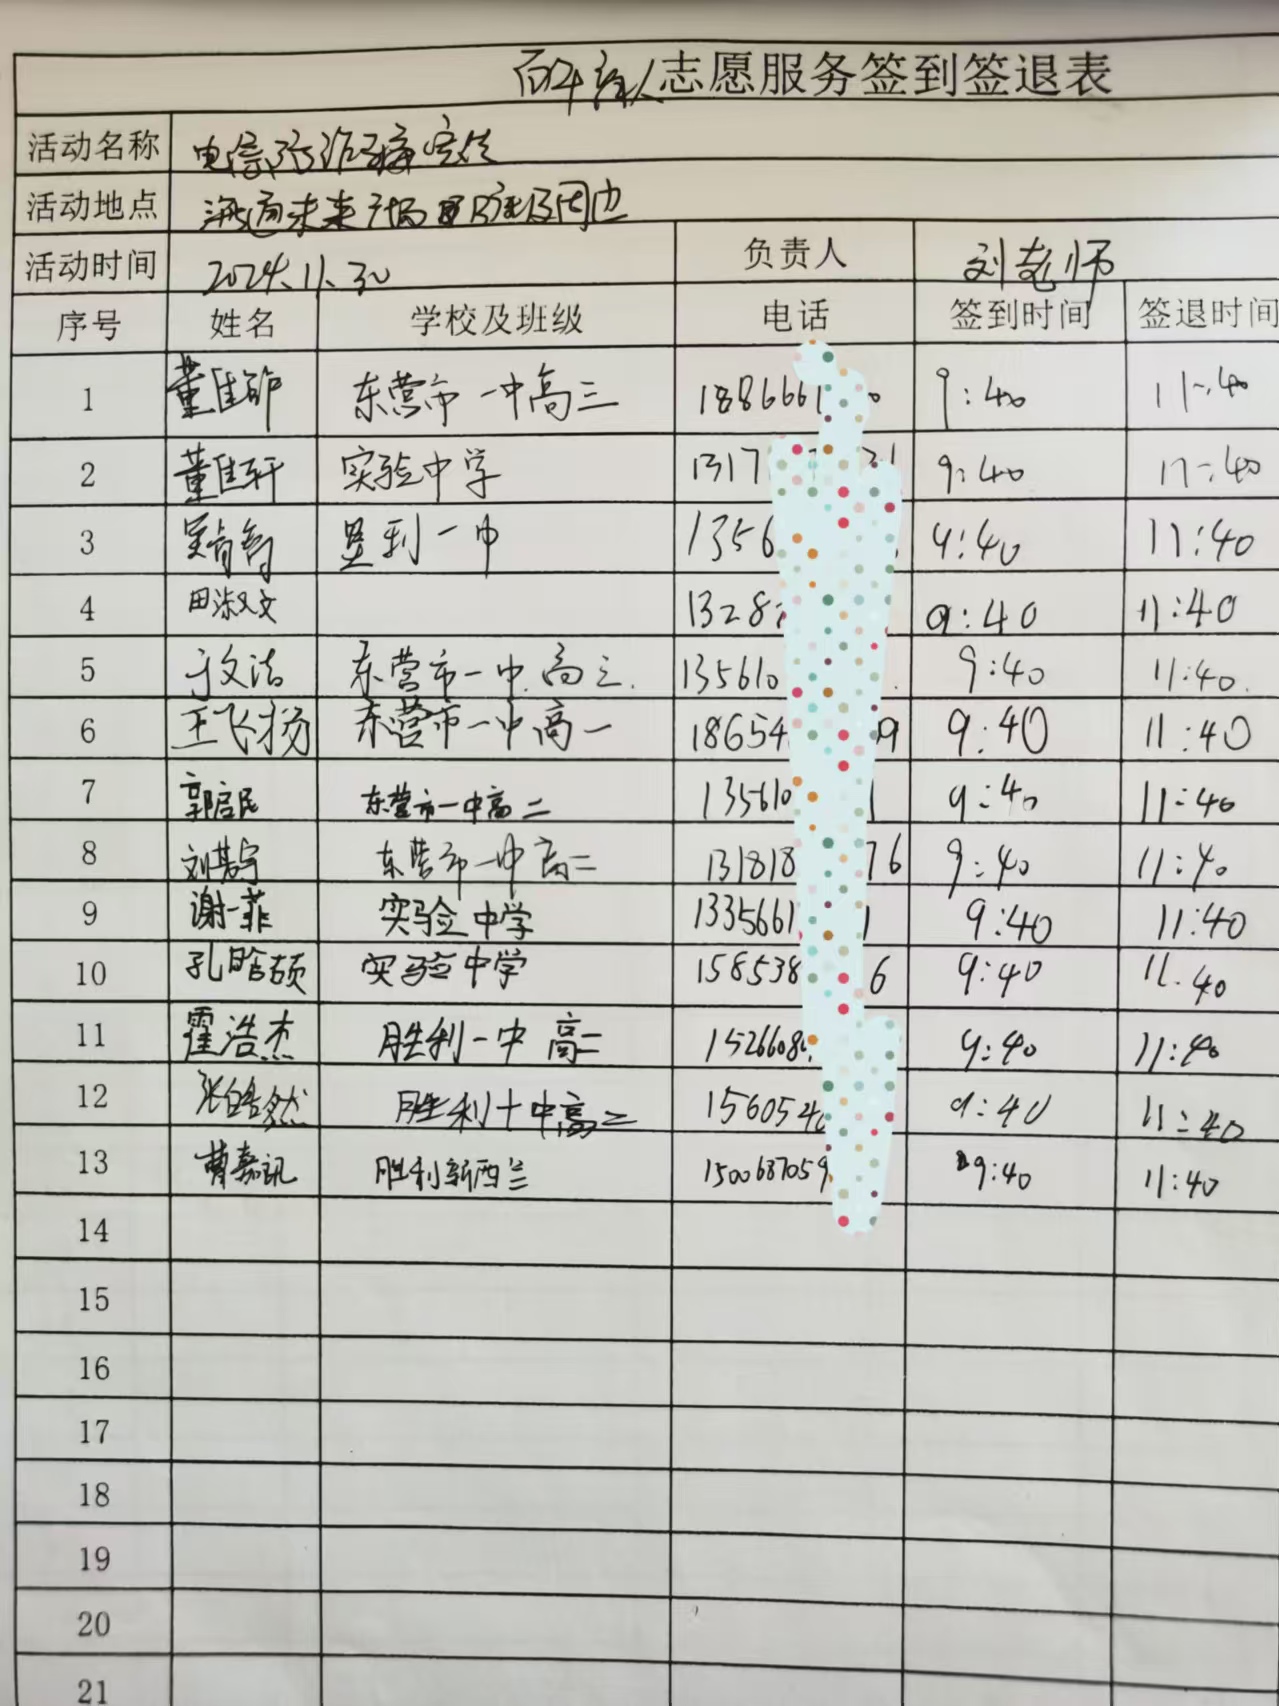 百年育人志愿服务签到签退表
活动名称 电信防诈骗宣传
活动地点 海通未来广场及周边
活动时间 2024.11.30 负责人 刘老师
序号 姓名 学校及班级 电话 签到时间 签退时间
1 董佳 东营市一中高三 1886661 9:40 11:40
2 董佳轩 实验中学 1317 31 9:40 11:40
3 胜利一中 1356 9:40 11:40
4 田淑文 1328 9:40 11:40
5 于文洁 东营市一中.高三. 135610 9:40 11:40.
6 王飞扬 东营市一中高一 18654 9 9:40 11:40
7 郭启民 东营市一中高二 135610 1 9:40 11:40
8 刘芳宇 东营市一中高二 131818 76 9:40 11:40
9 谢一菲 实验中学 1335661 1 9:40 11:40
10 孔晗硕 实验中学 158538 6 9:40 11.40
11 霍浩杰 胜利一中 高二 1526608 9:40 11:40
12 张皓然 胜利十中高二 1560546 9:40 11:40
13 曹嘉讯 胜利新西兰 1500687059 9:40 11:40
14
15
16
17
18
19
20
21